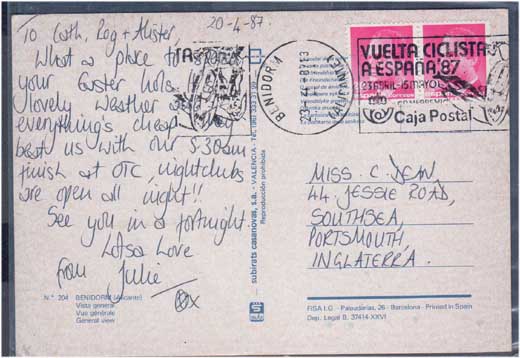 20-4-87.
To Cath, Rog + Alister,
What a place to
your Easter hols
lovely weather
everything's cheap
beat us with our 5.30am
finish at OTC, nightclubs
are open all night!!
See you in a fortnight.
Lotsa Love
from Julie
N.º 204 BENIDORM (Alicante)
Vista general
Vue générale
General view
subirats casanovas, s.a. - VALENCIA
Reproducción prohibida
BENIDORM
VUELTA CICLISTA
A ESPAÑA, '87
23 ABRIL-15 MAYO
Caja Postal
MISS. C. DEAN
44, JESSIE ROAD,
SOUTHSEA,
PORTSMOUTH,
INGLATERRA.
FISA I.G. - Palaudarias, 26 - Barcelona - Printed in Spain
Dep. Legal B. 37414-XXVI